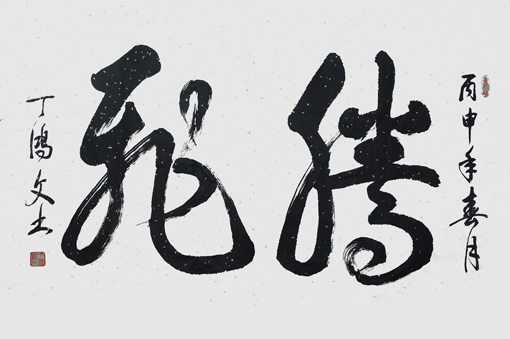 丙申年春月
腾飞
丁鸿文书